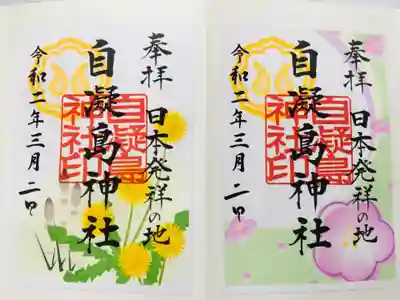 奉拝 日本発祥の地
自凝島神社
自凝島
神社印
令和二年三月二日
奉拝 日本発祥の地
自凝島神社
自凝島
神社印
令和二年三月二日